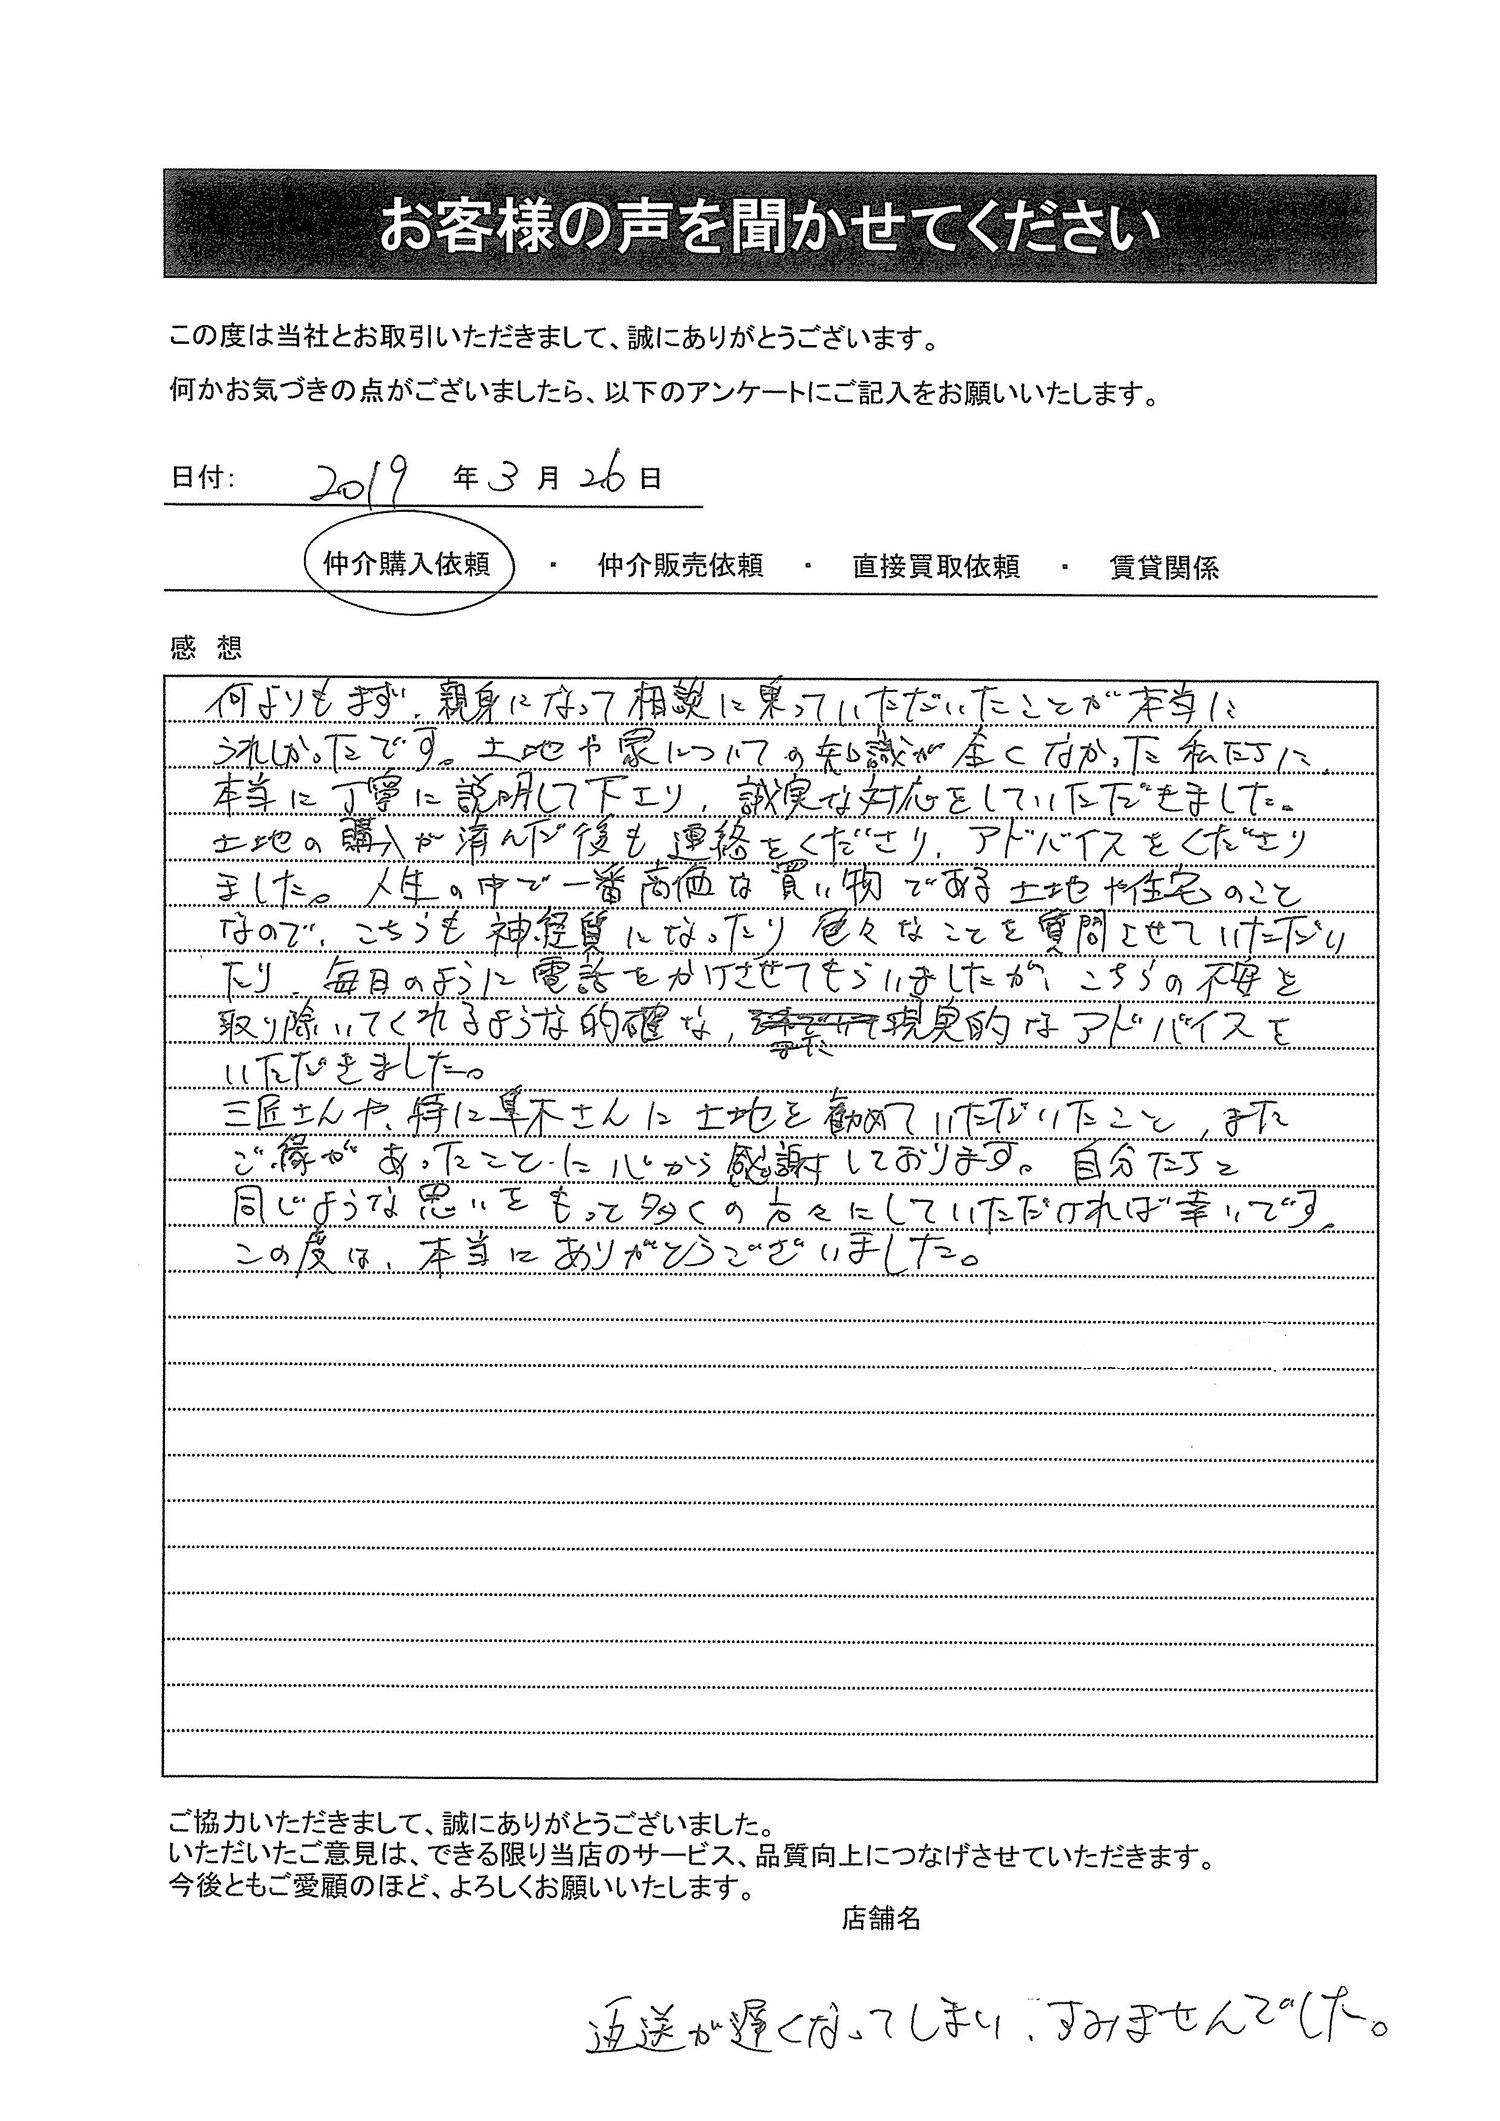 お客様の声を聞かせてください
この度は当社とお取引いただきまして、誠にありがとうございます。
何かお気づきの点がございましたら、以下のアンケートにご記入をお願いいたします。
日付: 2019 年 3 月 26 日
仲介購入依頼 ・ 仲介販売依頼 ・ 直接買取依頼 ・ 賃貸関係
感 想
何よりもまず、親身になって相談に乗っていただいたことが本当に
うれしかったです。土地や家についての知識が全くなかった私たちに、
本当に丁寧に説明して下さり、誠実な対応をしていただきました。
土地の購入が済んだ後も連絡をくださり、アドバイスをくださり
ました。人生の中で一番高価な買い物である土地や住宅のこと
なので、こちらも神経質になったり色々なことを質問させていただい
たり、毎日のように電話をかけさせてもらいましたが、こちらの不安を
取り除いてくれるような的確な、現実的なアドバイスを
いただきました。
三匠さんや、特に草木さんに土地を勧めていただいたこと、また
ご縁があったことに心から感謝しております。自分たちと
同じような思いをもって多くの方々にしていただければ幸いです。
この度は、本当にありがとうございました。
ご協力いただきまして、誠にありがとうございました。
いただいたご意見は、できる限り当店のサービス、品質向上につなげさせていただきます。
今後ともご愛顧のほど、よろしくお願いいたします。
店舗名
返送が遅くなってしまい、すみませんでした。